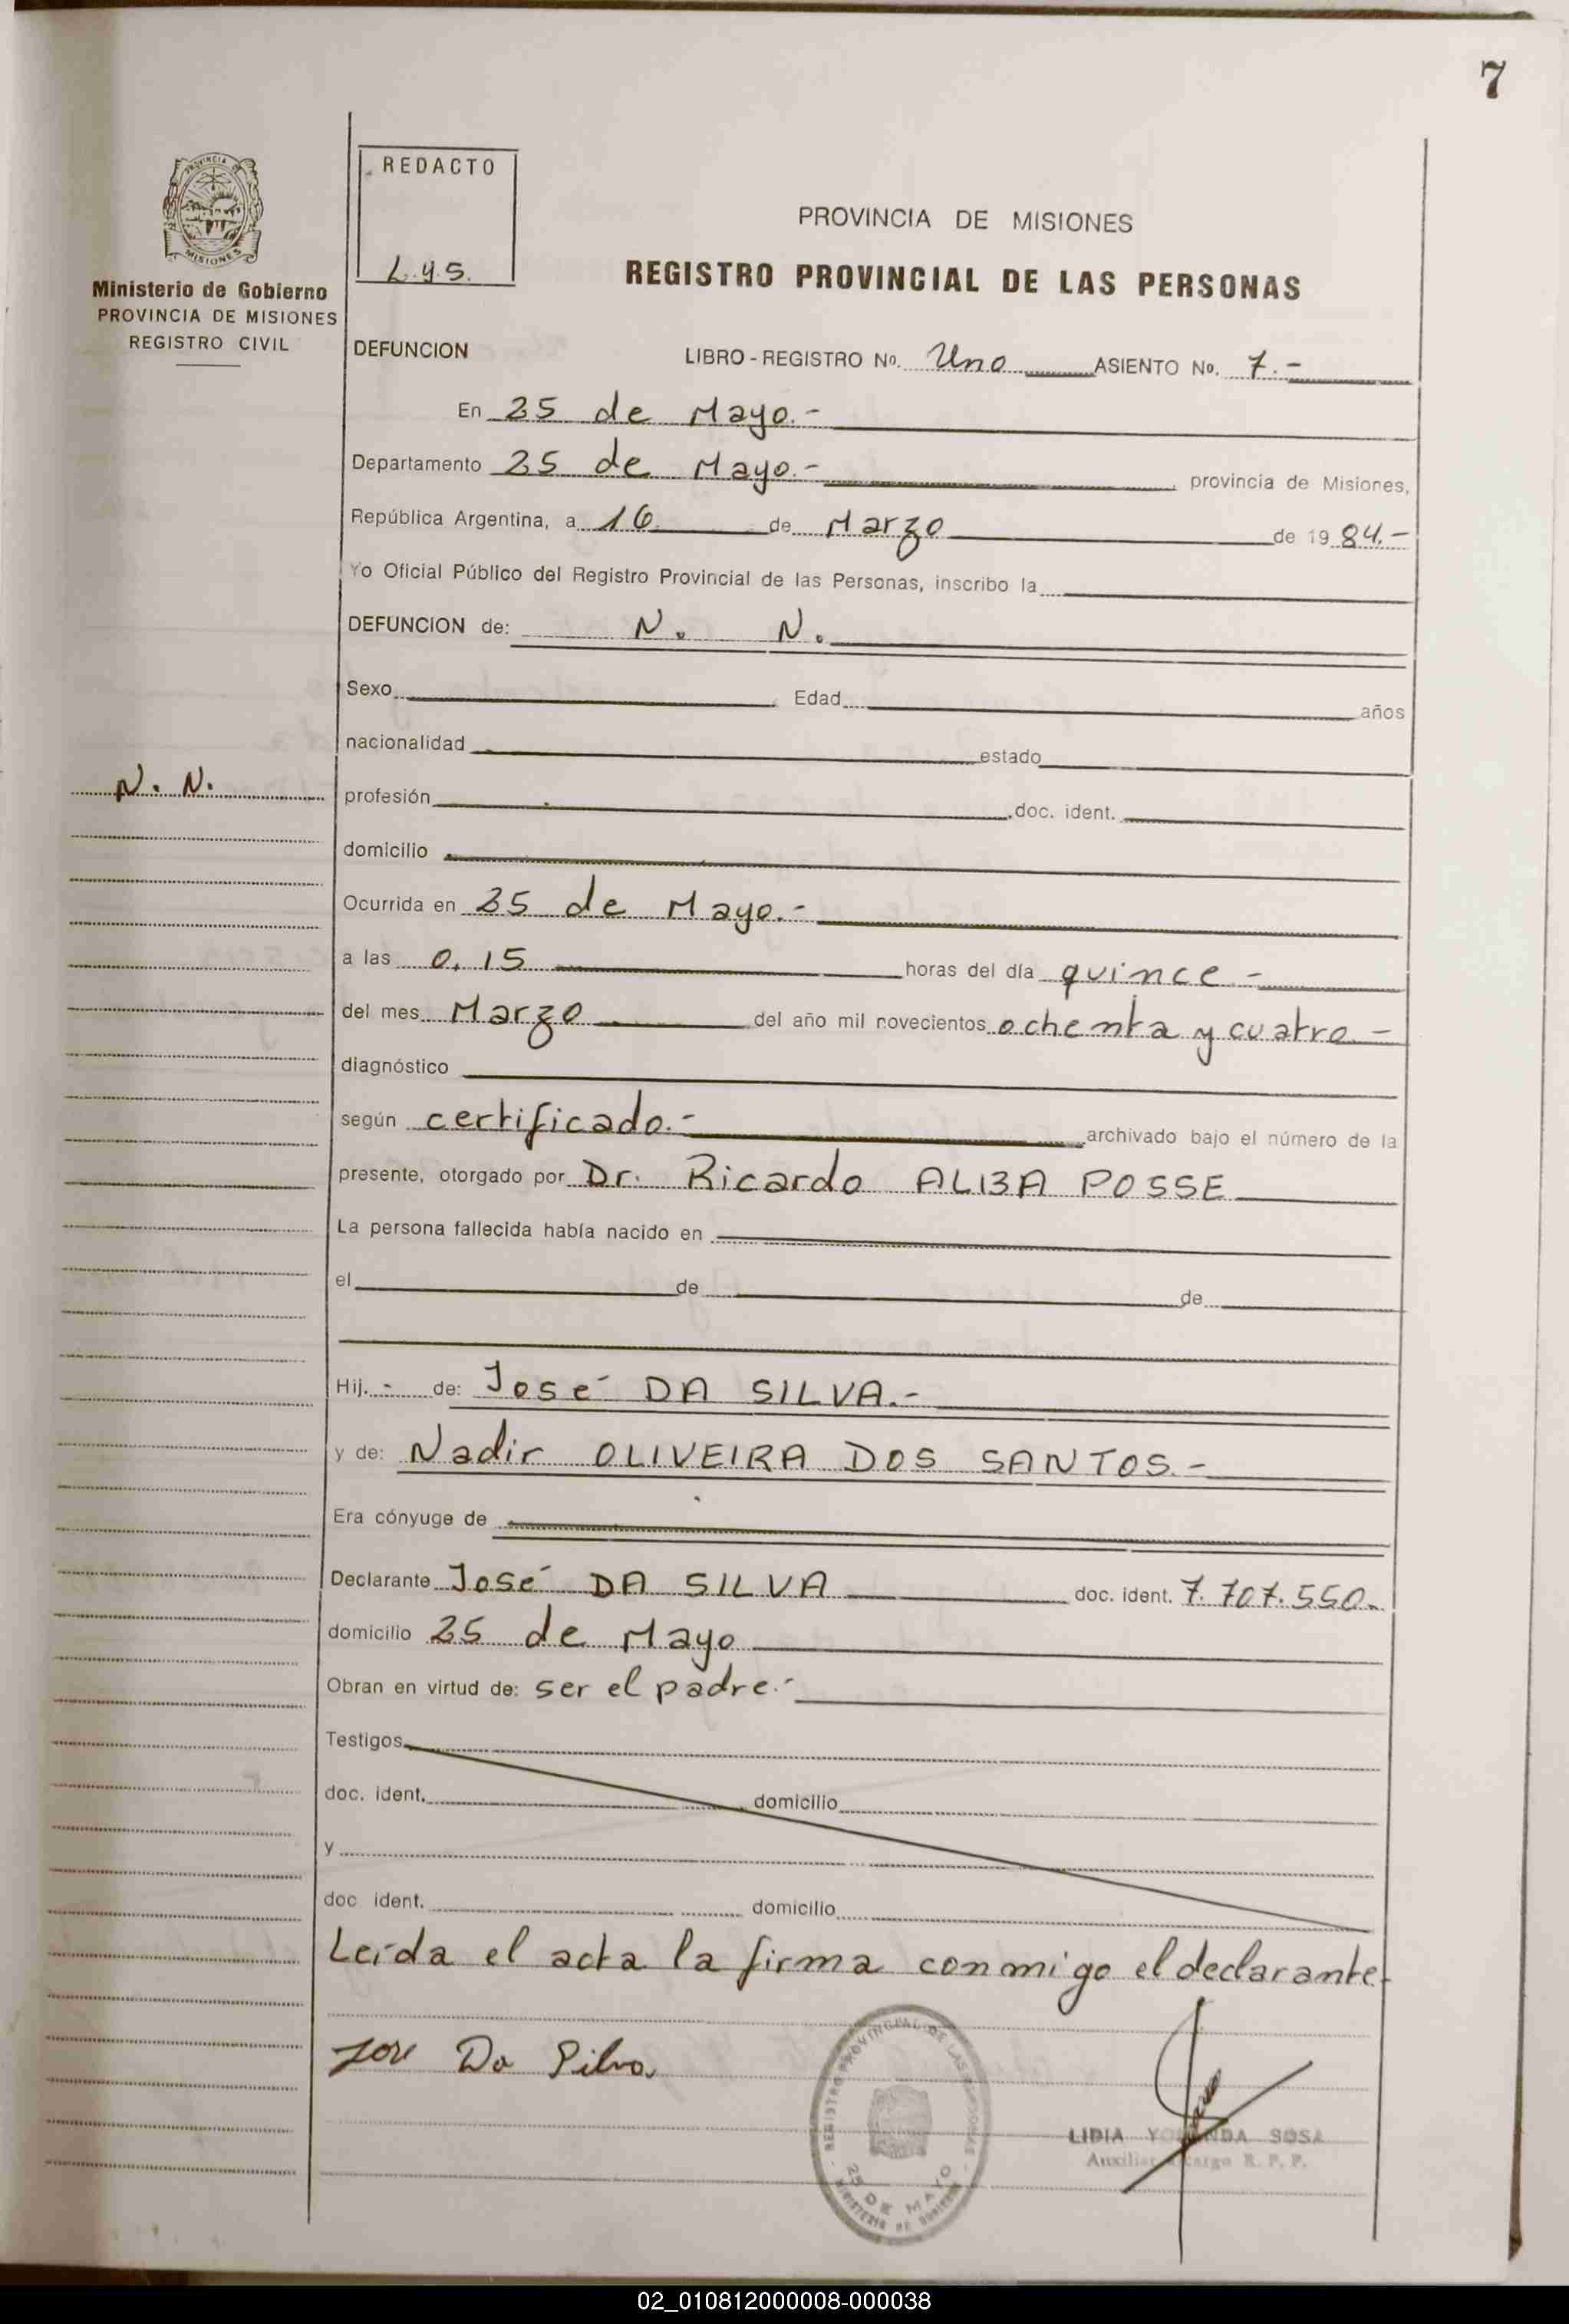 7
REDACTO
L.y.S.
PROVINCIA DE MISIONES
Ministerio de Gobierno
PROVINCIA DE MISIONES
REGISTRO CIVIL
REGISTRO PROVINCIAL DE LAS PERSONAS
DEFUNCION LIBRO - REGISTRO Nº. Uno ASIENTO Nº. 7.-
En 25 de Mayo.-
Departamento 25 de Mayo.- provincia de Misiones,
República Argentina, a 16 de Marzo de 1984.-
Yo Oficial Público del Registro Provincial de las Personas, inscribo la
DEFUNCION de: N. N.
Sexo Edad años
nacionalidad estado
N. N.
profesión doc. ident.
domicilio
Ocurrida en 25 de Mayo.-
a las 0,15 horas del día quince -
del mes Marzo del año mil novecientos ochenta y cuatro -
diagnóstico
según certificado.- archivado bajo el número de la
presente, otorgado por Dr. Ricardo ALBA POSSE
La persona fallecida había nacido en
el de de
Hij. - de: José DA SILVA.-
y de: Nadir OLIVEIRA DOS SANTOS.-
Era cónyuge de
Declarante José DA SILVA doc. ident. 7.707.550.
domicilio 25 de Mayo
Obran en virtud de: ser el padre.-
Testigos
doc. ident. domicilio
y
doc ident. domicilio
Leída el acta la firma conmigo el declarante.
José Da Silva
REGISTRO PROVINCIAL DE LAS PERSONAS
25 DE MAYO
MINISTERIO DE GOBIERNO
LIDIA YOLANDA SOSA
Auxiliar a cargo R. P. P.
02_010812000008-000038